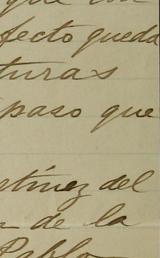 que con
fecto queda
turas
paso que
rtinez del
de la
Pablo